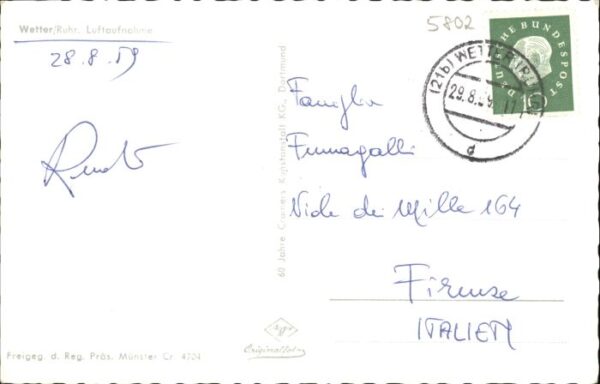 Wetter/Ruhr. Luftaufnahme
28.8.59
5802
DEUTSCHE BUNDESPOST
10
(21b) WETTER (RUHR)
29.8.59
d
Famiglia
Fumagalli
Viale dei Mille 164
Firenze
ITALIEN
60 Jahre Cramers Kunstanstalt KG., Dortmund
Agfa
Originalfoto
Freigeg. d. Reg. Präs. Münster Cr. 4704